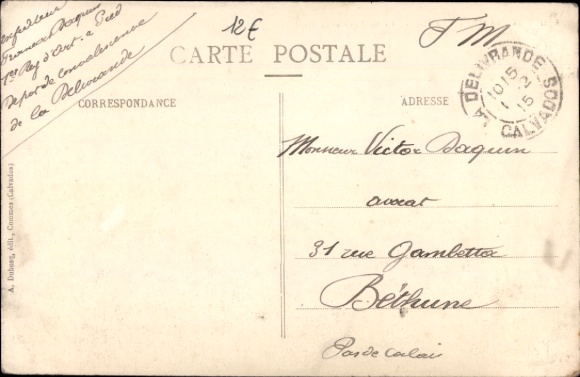 Expéditeur
Daquin
1er Reg d'Art. à Pied
Depot de Convalescence
de la Délivrande
12€
F M
CARTE POSTALE
CORRESPONDANCE
ADRESSE
LA DELIVRANDE-DOU
10 15
1 2
15
CALVADOS
Monsieur Victor Daquin
avocat
31 rue Gambetta
Béthune
Pas de Calais
A. Dubosq, édit., Courseulles (Calvados)